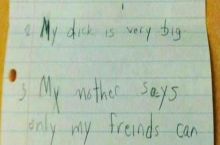 2. My dick is very big.
3) My mother says
only my freinds can